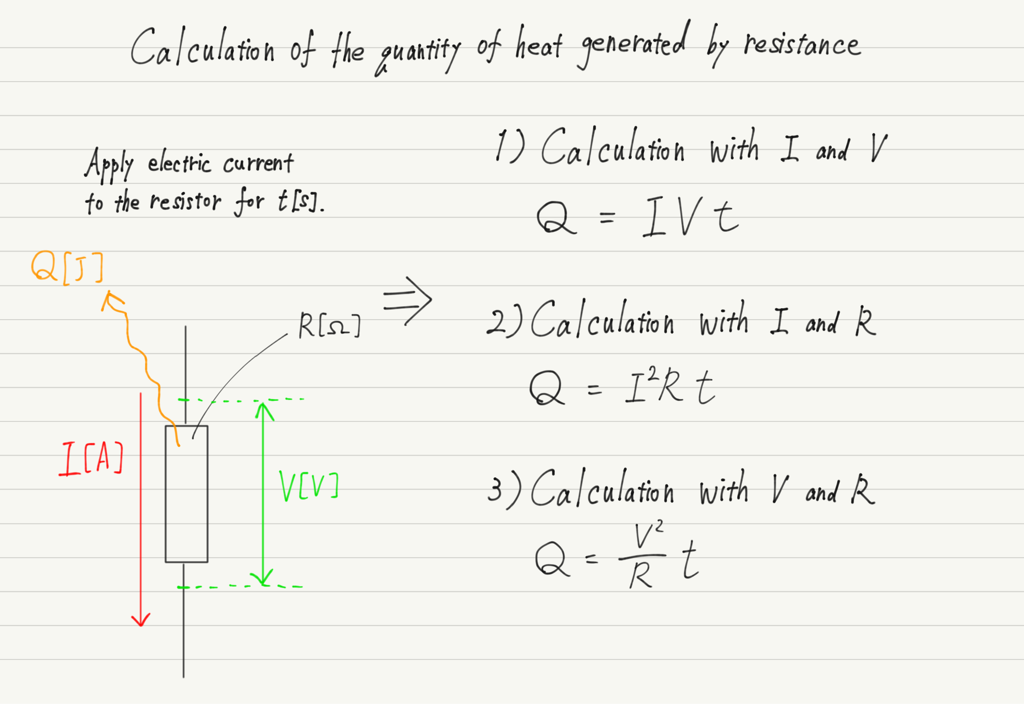 Calculation of the quantity of heat generated by resistance
Apply electric current
to the resistor for t[s].
Q[J]
R[Ω]
I[A]
V[V]
⇒
1) Calculation with I and V
Q = IVt
2) Calculation with I and R
Q = I²Rt
3) Calculation with V and R
Q = V²/R t